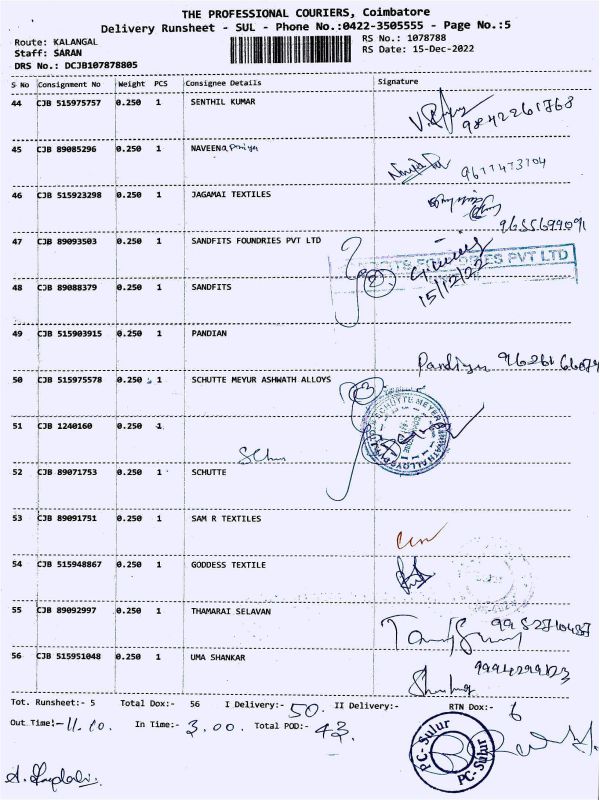 THE PROFESSIONAL COURIERS, Coimbatore
Delivery Runsheet - SUL - Phone No.:0422-3505555 - Page No.:5
Route: KALANGAL RS No.: 1078788
Staff: SARAN RS Date: 15-Dec-2022
DRS No.: DCJB107878805
S No Consignment No Weight PCS Consignee Details Signature
44 CJB 515975757 0.250 1 SENTHIL KUMAR 9842261768
45 CJB 89085296 0.250 1 NAVEENA priya
46 CJB 515923298 0.250 1 JAGAMAI TEXTILES
9655699091
47 CJB 89093503 0.250 1 SANDFITS FOUNDRIES PVT LTD
FOUNDRIES PVT LTD
48 CJB 89088379 0.250 1 SANDFITS 2 15/12/22
49 CJB 515903915 0.250 1 PANDIAN
Pandiyan
50 CJB 515975578 0.250 1 SCHUTTE MEYUR ASHWATH ALLOYS 3
51 CJB 1240160 0.250 1
52 CJB 89071753 0.250 1 SCHUTTE
53 CJB 89091751 0.250 1 SAM R TEXTILES
54 CJB 515948867 0.250 1 GODDESS TEXTILE
55 CJB 89092997 0.250 1 THAMARAI SELAVAN
56 CJB 515951048 0.250 1 UMA SHANKAR
Tot. Runsheet:- 5 Total Dox:- 56 I Delivery:- 50. II Delivery:- RTN Dox:- 6
Out Time:- 11.10. In Time:- 3.00. Total POD:- 43
PC-Sulur
PC-Sulur